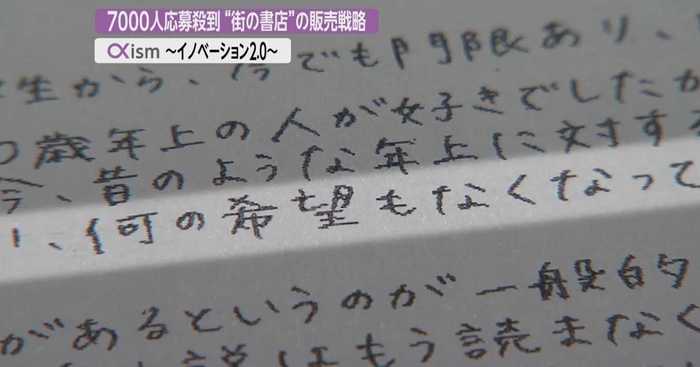 7000人応募殺到 “街の書店”の販売戦略
αism 〜イノベーション2.0〜
生から、今でも門限あり、
歳年上の人が好きでしたか
今、昔のような年上に対する
、何の希望もなくなって
があるというのが一般的
はもう読まなく